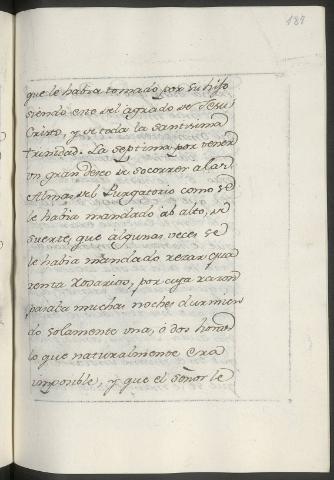 187
que le habia tomado por su hijo
siendo esto del agrado de Jesu
Cristo, y de toda la santisima
trinidad. La septima, por tener
un gran deseo de socorrer a las
Almas del Purgatorio como se
le habia mandado ab alto, de
suerte, que algunas veces se
le habia mandado rezar qua
renta Rosarios, por cuya razon
pasaba muchas noches durmien
do solamente una, ò dos horas
lo que naturalmente era
imposible, y que el señor le